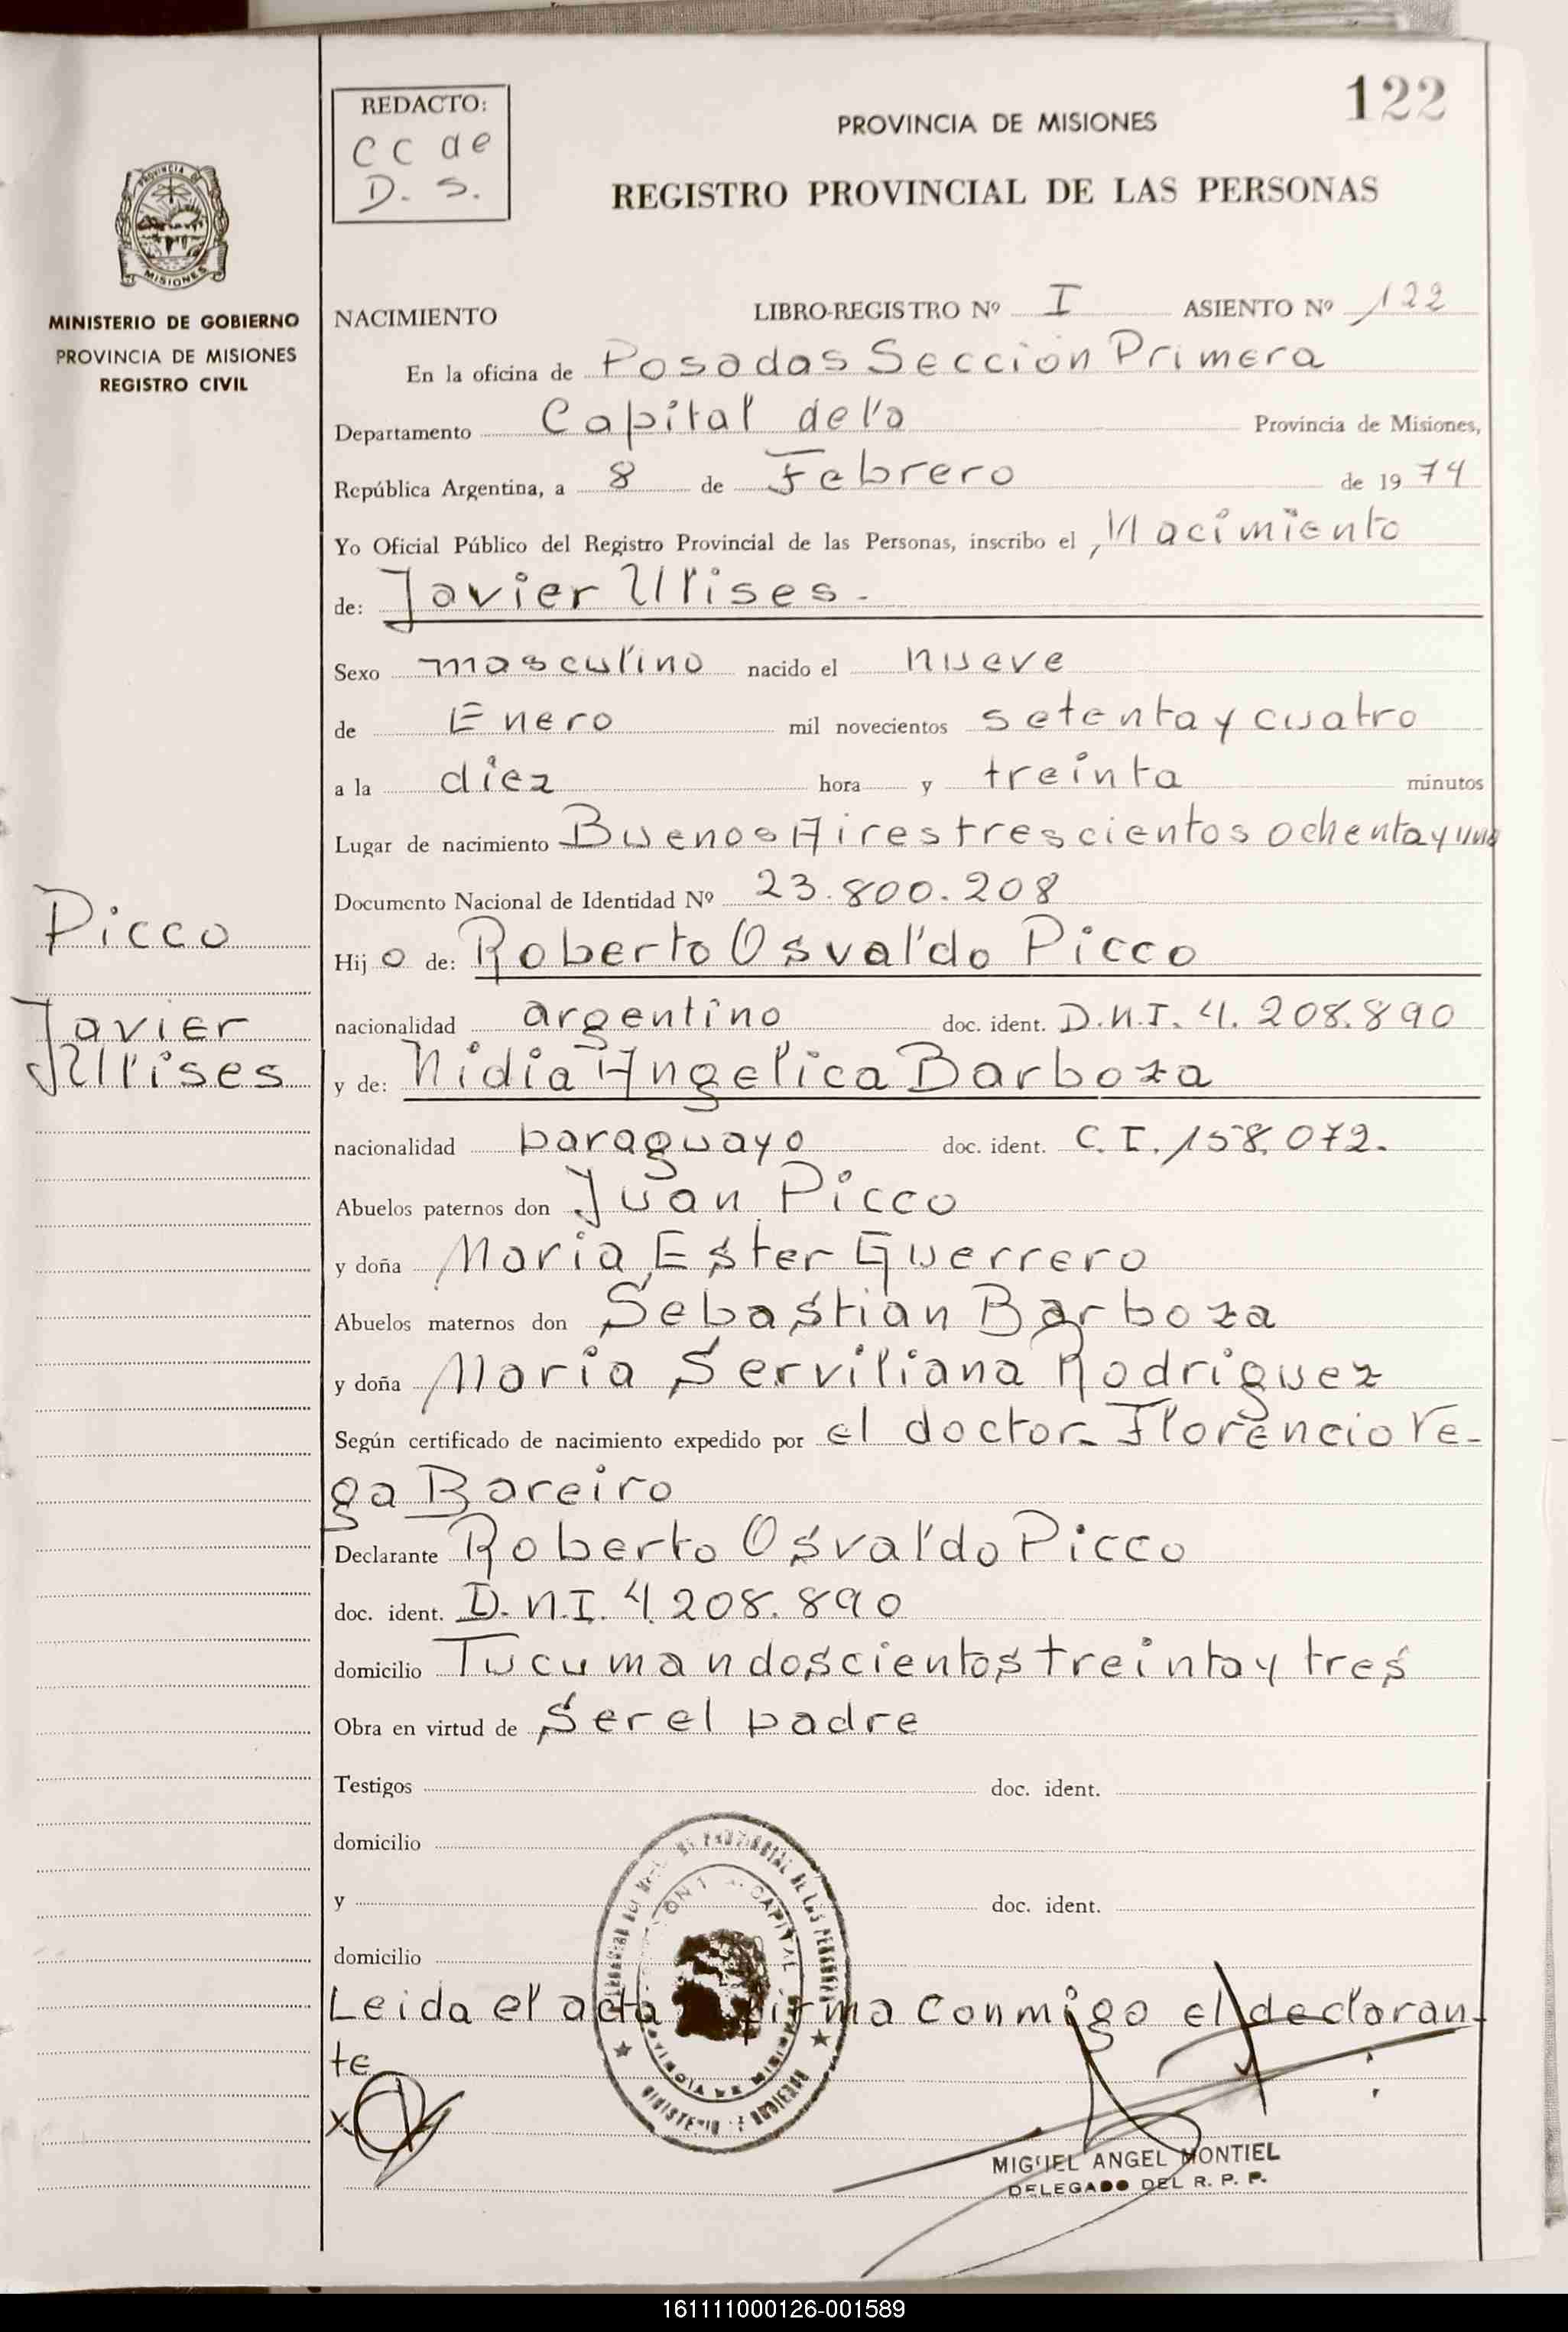 122
REDACTO:
CC de
D. S.
PROVINCIA DE MISIONES
REGISTRO PROVINCIAL DE LAS PERSONAS
PROVINCIA DE
MISIONES
MINISTERIO DE GOBIERNO
PROVINCIA DE MISIONES
REGISTRO CIVIL
NACIMIENTO LIBRO-REGISTRO Nº I ASIENTO Nº 122
En la oficina de Posadas Sección Primera
Departamento Capital de la Provincia de Misiones,
República Argentina, a 8 de Febrero de 1974
Yo Oficial Público del Registro Provincial de las Personas, inscribo el Nacimiento
de: Javier Ulises.
Sexo masculino nacido el nueve
de Enero mil novecientos setenta y cuatro
a la diez hora y treinta minutos
Lugar de nacimiento Buenos Aires trescientos ochenta y uno
Documento Nacional de Identidad Nº 23.800.208
Picco
Hijo de: Roberto Osvaldo Picco
Javier
Ulises
nacionalidad argentino doc. ident. D.N.I. 4.208.890
y de: Nidia Angelica Barboza
nacionalidad paraguayo doc. ident. C.I. 158.072.
Abuelos paternos don Juan Picco
y doña Maria Ester Guerrero
Abuelos maternos don Sebastian Barboza
y doña Maria Serviliana Rodriguez
Según certificado de nacimiento expedido por el doctor Florencio Ve-
ga Bareiro
Declarante Roberto Osvaldo Picco
doc. ident. D.N.I. 4.208.890
domicilio Tucuman doscientos treinta y tres
Obra en virtud de ser el padre
Testigos doc. ident.
domicilio
y doc. ident.
domicilio
Leida el acta firma conmigo el declaran-
te
X
MIGUEL ANGEL MONTIEL
DELEGADO DEL R. P. P.
161111000126-001589